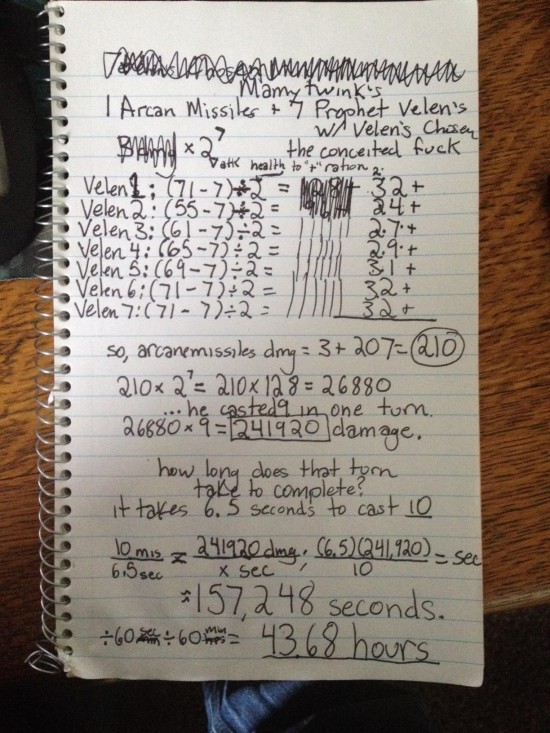 Mamytwink's
1 Arcan Missiles + 7 Prophet Velen's
w/ Velen's Chosen
x 2⁷ the conceited fuck
atk health to "+" ration 2:
Velen 1: (71-7)÷2 = 32+
Velen 2: (55-7)÷2 = 24+
Velen 3: (61-7)÷2 = 27+
Velen 4: (65-7)÷2 = 29+
Velen 5: (69-7)÷2 = 31+
Velen 6: (71-7)÷2 = 32+
Velen 7: (71-7)÷2 = 32+
so, arcanemissiles dmg = 3+207= 210
210 x 2⁷ = 210 x 128 = 26880
...he casted 9 in one turn.
26880 x 9 = 241920 damage.
how long does that turn
take to complete?
it takes 6.5 seconds to cast 10
10 mis / 6.5 sec = 241920 dmg / x sec ; (6.5)(241,920) / 10 = sec
=157,248 seconds.
÷60 ÷60 = 43.68 hours